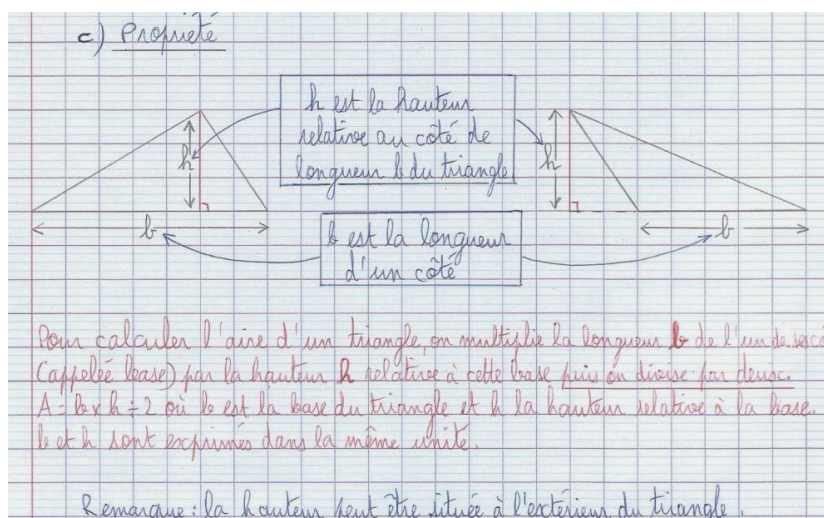 c) Propriété
h est la hauteur
relative au côté de
longueur b du triangle
h
h
b
b
b est la longueur
d'un côté
Pour calculer l'aire d'un triangle, on multiplie la longueur b de l'un de ses
(appelée base) par la hauteur h relative à cette base puis on divise par deux.
A = b x h ÷ 2 où b est la base du triangle et h la hauteur relative à la base.
b et h sont exprimés dans la même unité.
Remarque : la hauteur peut être située à l'extérieur du triangle.